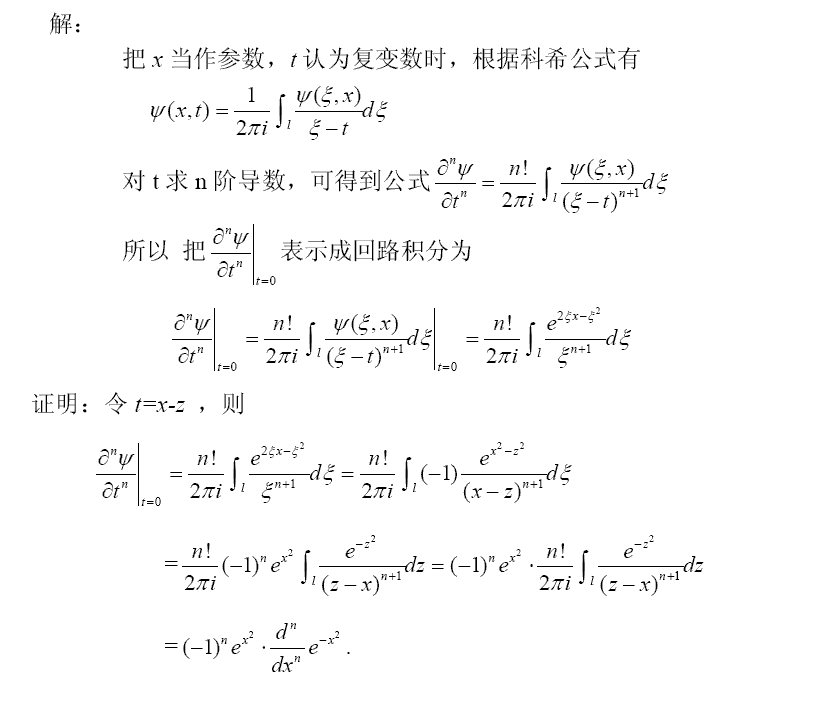 解：
把 x 当作参数，t 认为复变数时，根据科希公式有
$\psi(x,t)=\frac{1}{2\pi i}\int_{l}\frac{\psi(\xi,x)}{\xi-t}d\xi$
对 t 求 n 阶导数，可得到公式$\frac{\partial^{n}\psi}{\partial t^{n}}=\frac{n!}{2\pi i}\int_{l}\frac{\psi(\xi,x)}{(\xi-t)^{n+1}}d\xi$
所以 把$\left.\frac{\partial^{n}\psi}{\partial t^{n}}\right|_{t=0}$表示成回路积分为
$\left.\frac{\partial^{n}\psi}{\partial t^{n}}\right|_{t=0}=\frac{n!}{2\pi i}\int_{l}\frac{\psi(\xi,x)}{(\xi-t)^{n+1}}d\xi\Big|_{t=0}=\frac{n!}{2\pi i}\int_{l}\frac{e^{2\xi x-\xi^{2}}}{\xi^{n+1}}d\xi$
证明：令 t=x-z ，则
$\left.\frac{\partial^{n}\psi}{\partial t^{n}}\right|_{t=0}=\frac{n!}{2\pi i}\int_{l}\frac{e^{2\xi x-\xi^{2}}}{\xi^{n+1}}d\xi=\frac{n!}{2\pi i}\int_{l}(-1)\frac{e^{x^{2}-z^{2}}}{(x-z)^{n+1}}d\xi$
$=\frac{n!}{2\pi i}(-1)^{n}e^{x^{2}}\int_{l}\frac{e^{-z^{2}}}{(z-x)^{n+1}}dz=(-1)^{n}e^{x^{2}}\cdot\frac{n!}{2\pi i}\int_{l}\frac{e^{-z^{2}}}{(z-x)^{n+1}}dz$
$=(-1)^{n}e^{x^{2}}\cdot\frac{d^{n}}{dx^{n}}e^{-x^{2}}.$